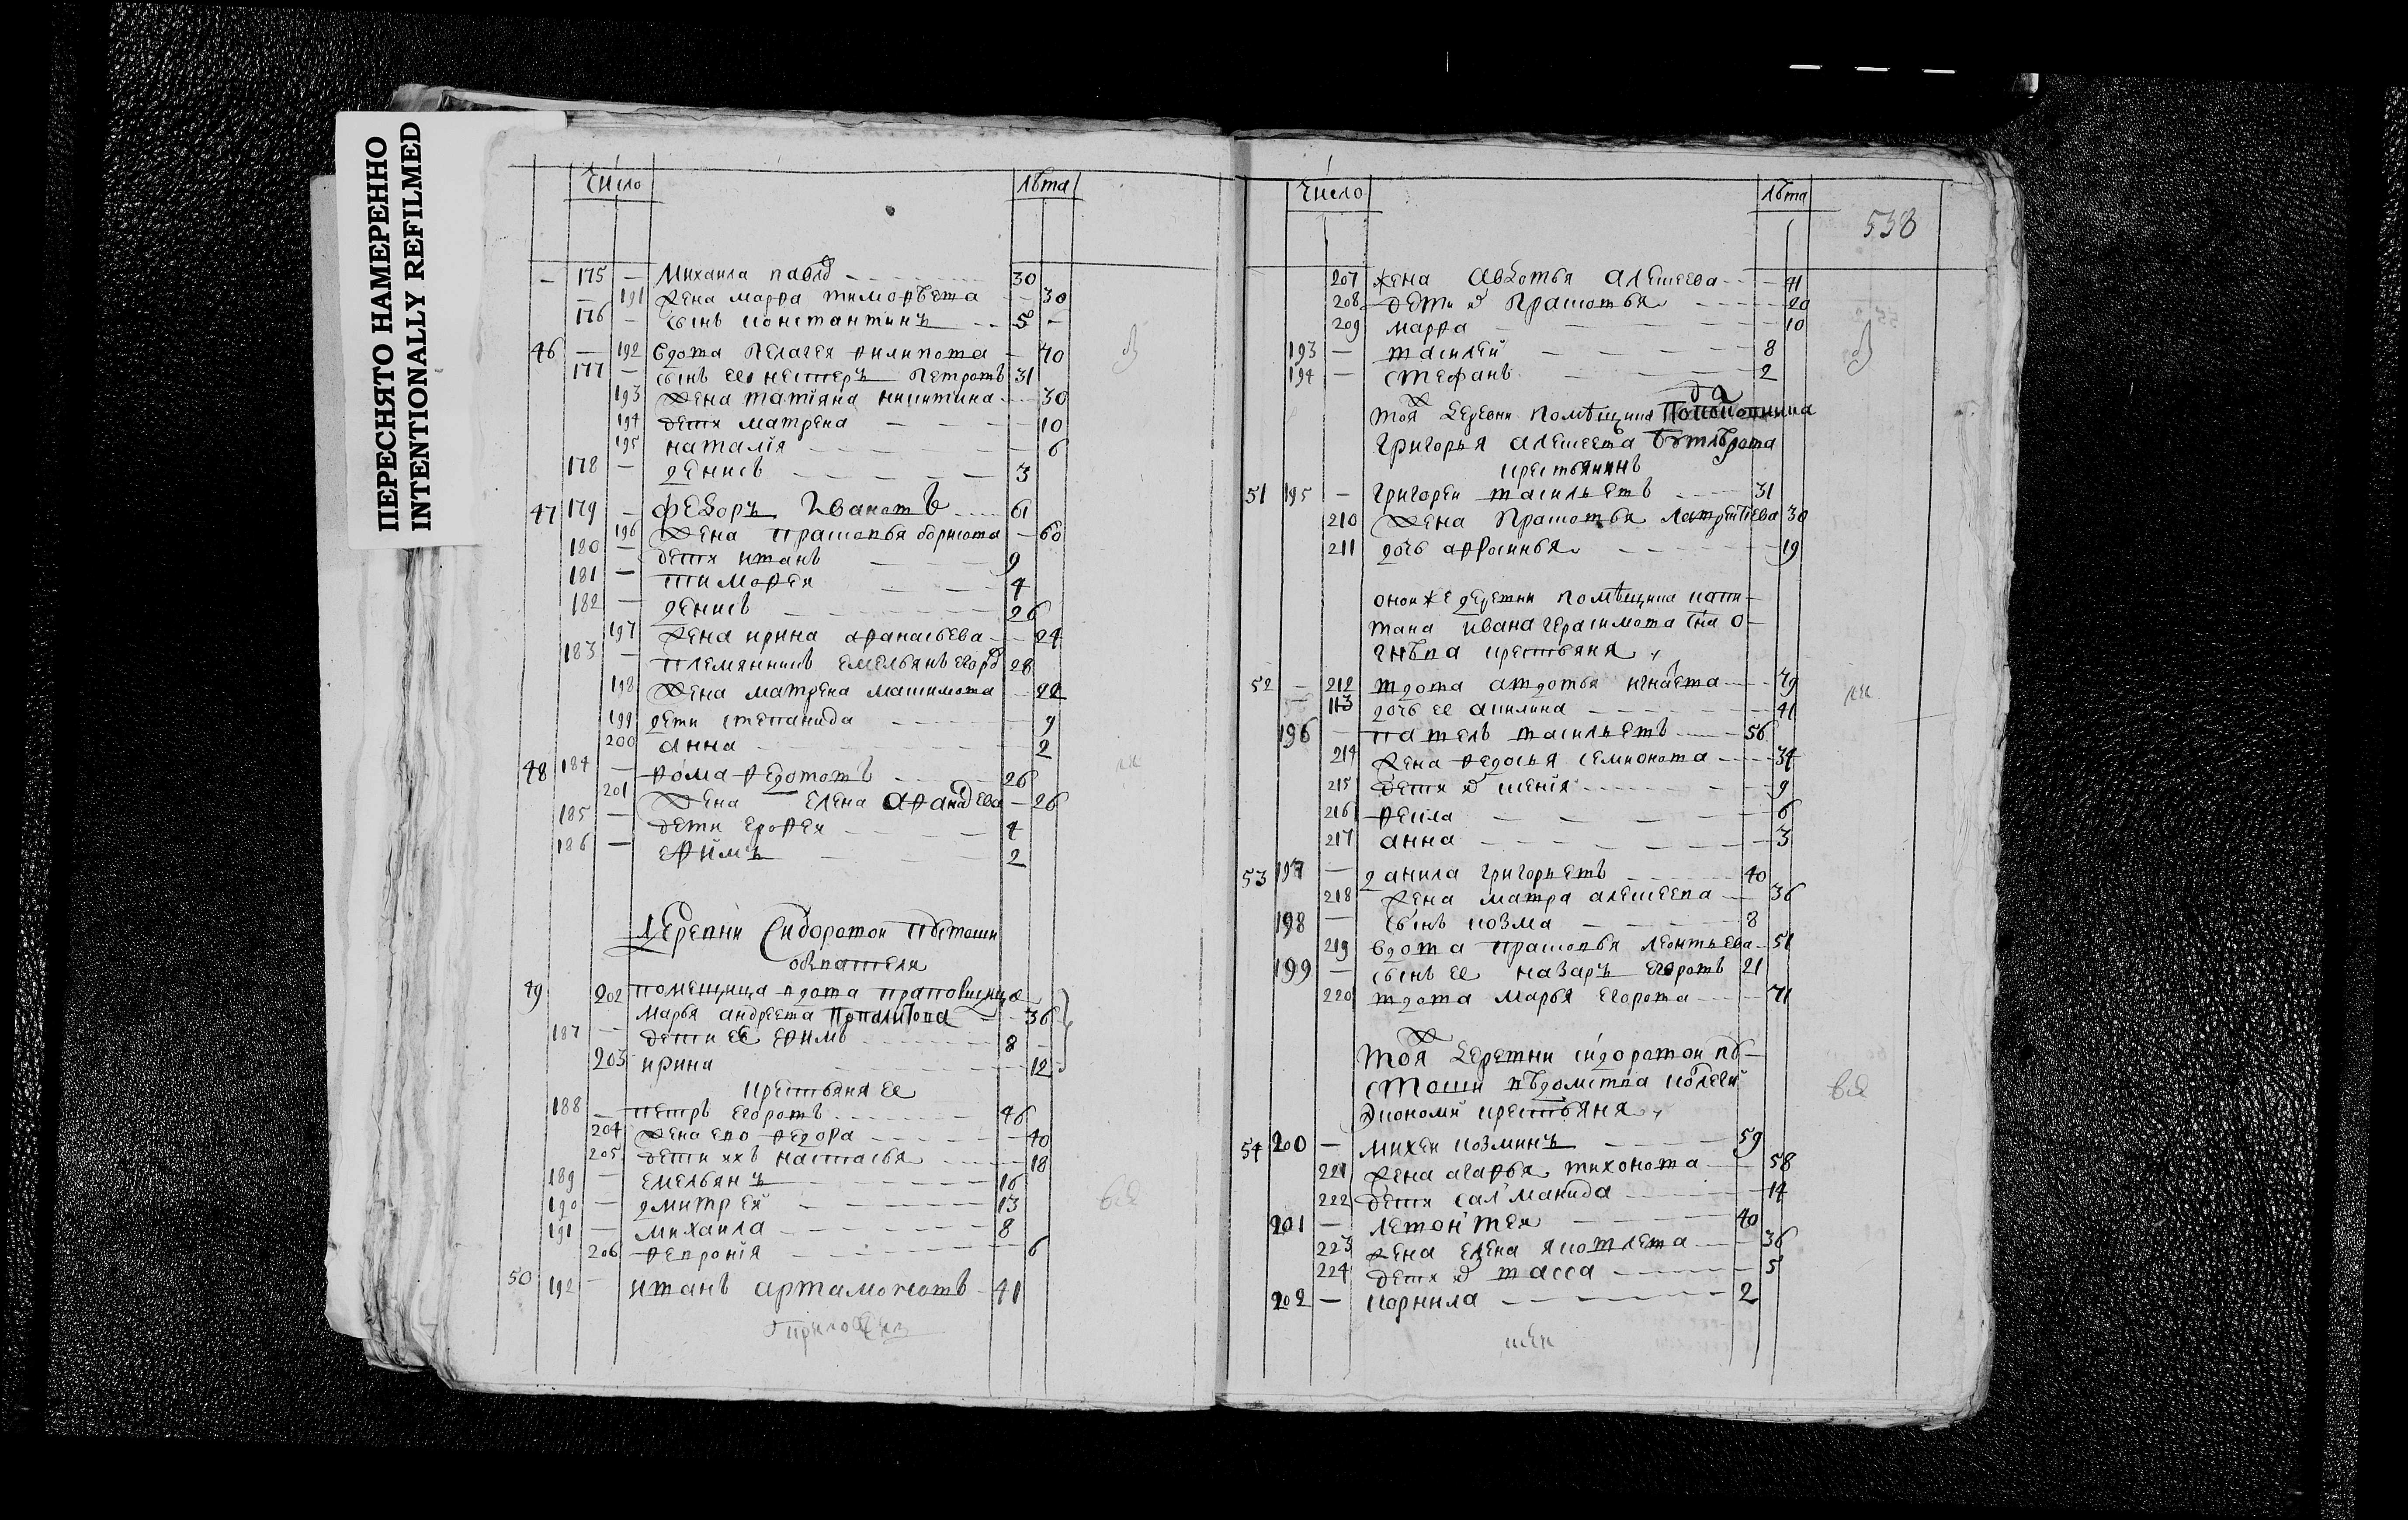 ПЕРЕСНЯТО НАМЕРЕННО
INTENTIONALLY REFILMED
Число лѣта
— 175 — Михаила павлов 30
— 191 жена марфа тимофѣева — 30
176 — сынъ константинъ 5 —
46 — 192 вдова пелагея филипова — 40
177 — сынъ ее нестеръ петровъ 31
193 жена татіяна никитина 30
194 дети матрена 10
195 наталія 6
178 — денисъ 3
47 179 — федоръ Ивановъ 61
196 жена прасковья борисова — 60
180 — дети иванъ 9
181 — тимофеи 4
182 — денисъ 26
197 жена ирина афанасьева 24
183 — племянникъ емельянъ егоров 28
198 жена матрена макимова 22
199 дети степанида 9
200 анна 2
48 184 — фома федотовъ 26
201 жена елена афанасева — 26
185 — дети ерофеи 4
186 — ефимъ 2
деревни Сидоровой пустоши
обватели
49 202 помещица вдова прапорщица
марья андреева 36
187 — дети ее ефимъ 8
203 ирина 12
крестьяня ее
188 — петръ егоровъ 46
204 жена ево федора 40
205 дети ихъ настасья 18
189 — емельянъ 16
190 — дмитреи 13
191 — михаила 8
206 февронія 6
50 192 — иванъ артамоновъ 41
Число лѣта
538
207 жена авдотья алексеева 41
208 дети прасковья 20
209 марфа 10
193 — василей 8
194 — стефанъ 2
да
тоя деревни помѣщика
григорья алексеева
крестьянинъ
51 195 — григореи васильевъ 31
210 жена прасковья лаврентіева 30
211 дочь афросинья 19
онои же деревни помѣщика капи-
тана ивана герасимова сна о-
гнѣва крестьяня
52 — 212 вдова авдотья игнаева 79
— 113 дочь ее акилина 41
196 — павелъ васильевъ 56
214 жена федосья семионова 34
215 дети ксенія 9
216 фекла 6
217 анна 3
53 197 — данила григорьевъ 40
218 жена мавра алексеева 36
198 — сынъ козма 8
219 вдова прасковья леонтьева 51
199 — сынъ ее назаръ егоровъ 21
220 вдова марья егорова 71
тоя деревни сидоровои пу-
стоши вѣдомства колеги
экономи крестьяня
54 200 — михеи козминъ 59
221 жена агафья тихонова 58
222 дети саламанида 14
201 — левонтеи 40
223 жена елена яковлева 36
224 дети васса 5
202 — корнила 2